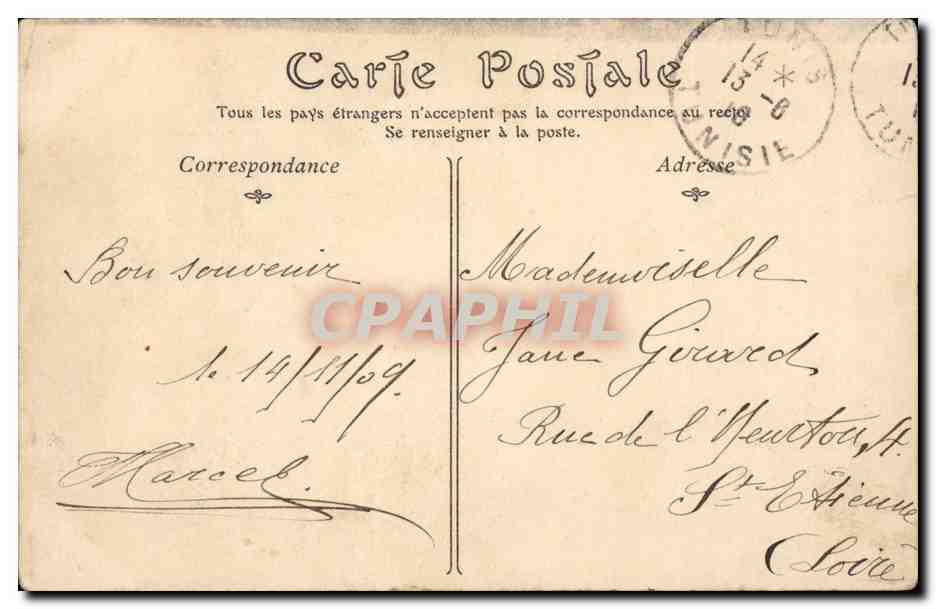 Carte Postale
Tous les pays étrangers n'acceptent pas la correspondance au recto.
Se renseigner à la poste.
Correspondance
Adresse
TUNIS
14 *
13 -8
TUNISIE
Bon souvenir
le 14/11/09.
Marcel.
Mademoiselle
Jane Girard
Rue de l'Heurton, 4.
St Etienne
(Loire
CPAPHIL